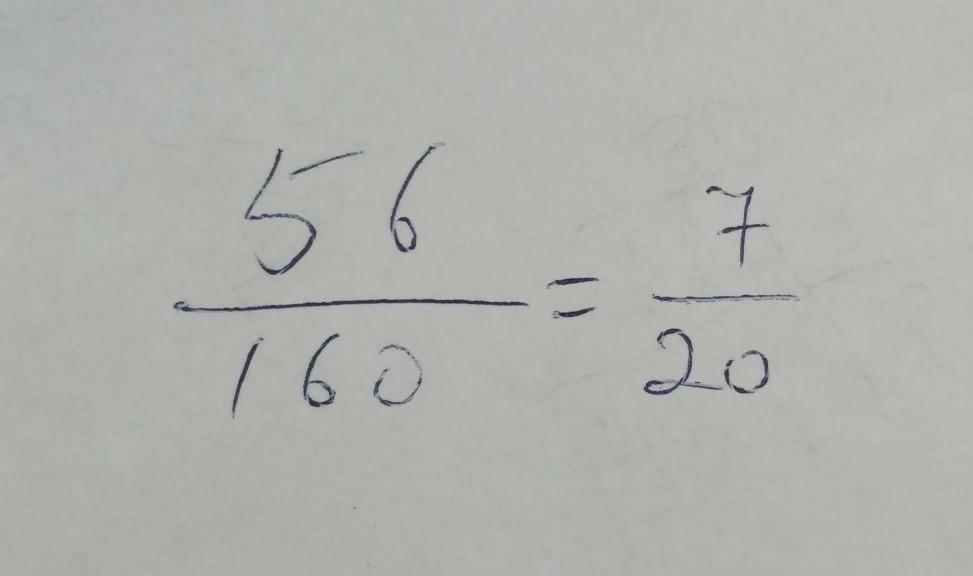 56/160 = 7/20